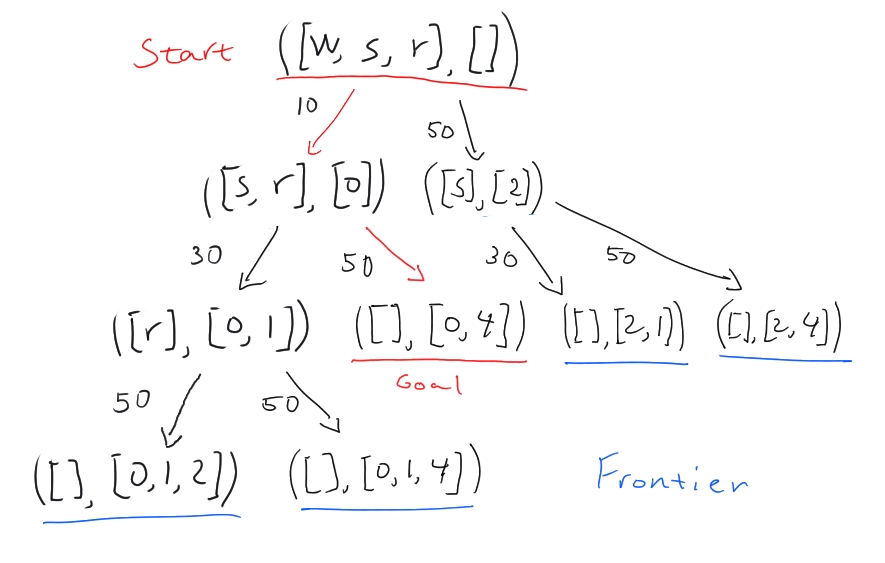 Start ([w, s, r], [])
10 50
([s, r], [0]) ([s], [2])
30 50 30 50
([r], [0, 1]) ([], [0, 4]) ([], [2, 1]) ([], [2, 4])
Goal
50 50
([], [0, 1, 2]) ([], [0, 1, 4]) Frontier